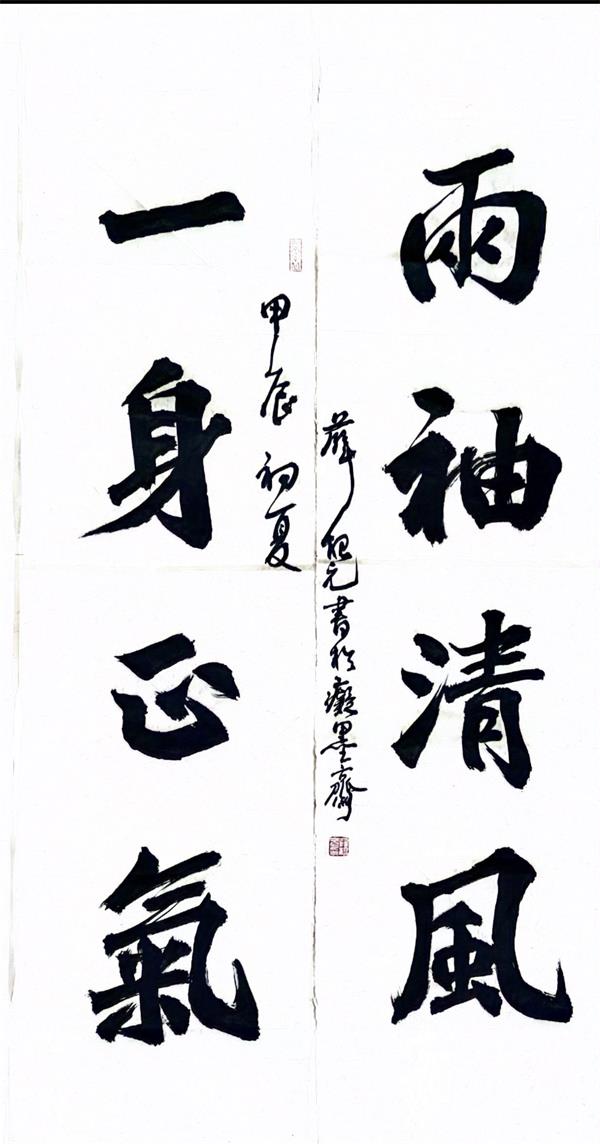 兩袖清風
薛紀元書於癡墨齋
甲辰初夏
一身正氣